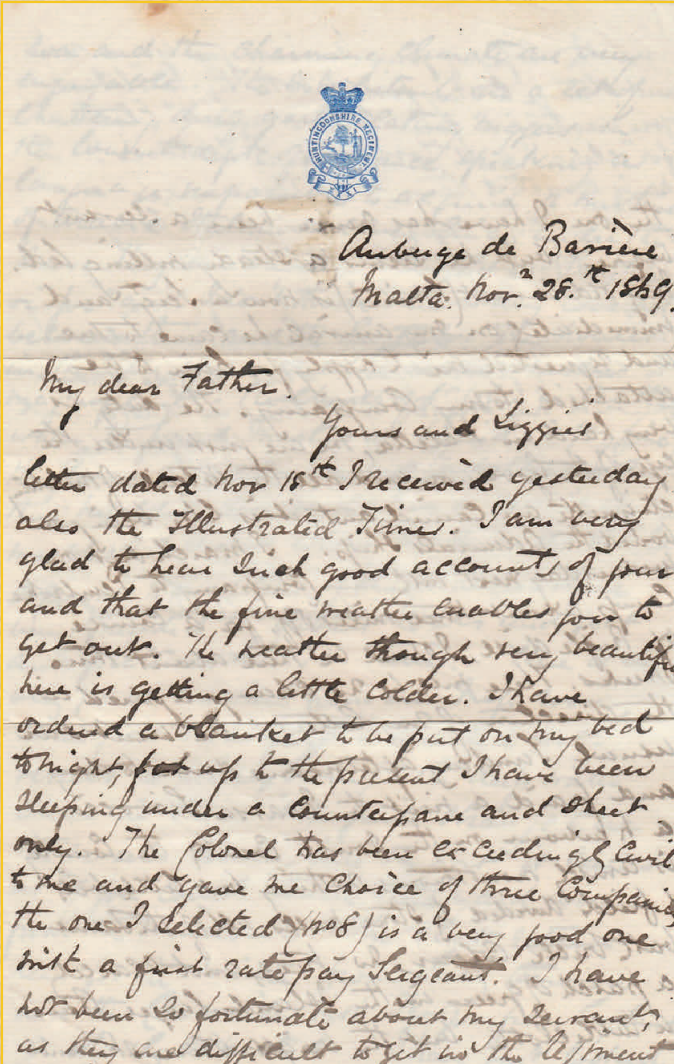 HUNTINGDONSHIRE REGIMENT
Auberge de Bavière
Malta. Novr. 28.th 1869.
My dear Father.
Yours and Lizzies
letter dated Nov 18th I received yesterday
also the Illustrated Times. I am very
glad to hear such good accounts of your
and that the fine weather enables you to
get out. The weather though very beautiful
here is getting a little colder. I have
ordered a blanket to be put on my bed
tonight, for up to the present I have been
sleeping under a counterpane and sheet
only. The Colonel has been exceedingly civil
to me and gave me choice of three Companies
the one I selected (No 8) is a very good one
with a first rate pay Sergeant. I have
not been so fortunate about my servant,
as they are difficult to get in the